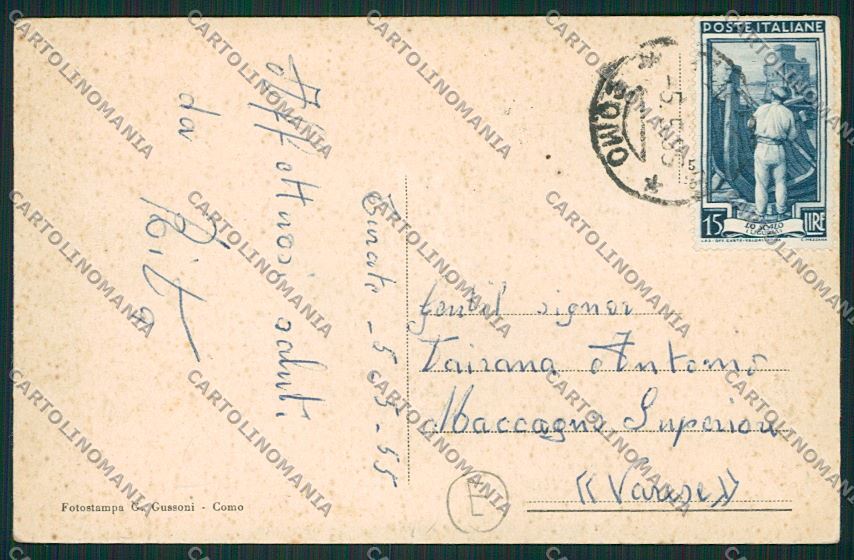 Affettuosi saluti
da Rita
Turate - 5 - 5 - 55
POSTE ITALIANE
15 LIRE
LO SCALO
LIGURIA
COMO
Gentil signor
Tairana Antonio
Maccagno Superiore
«Varese»
Fotostampa G. Gussoni - Como
E
CARTOLINOMANIA